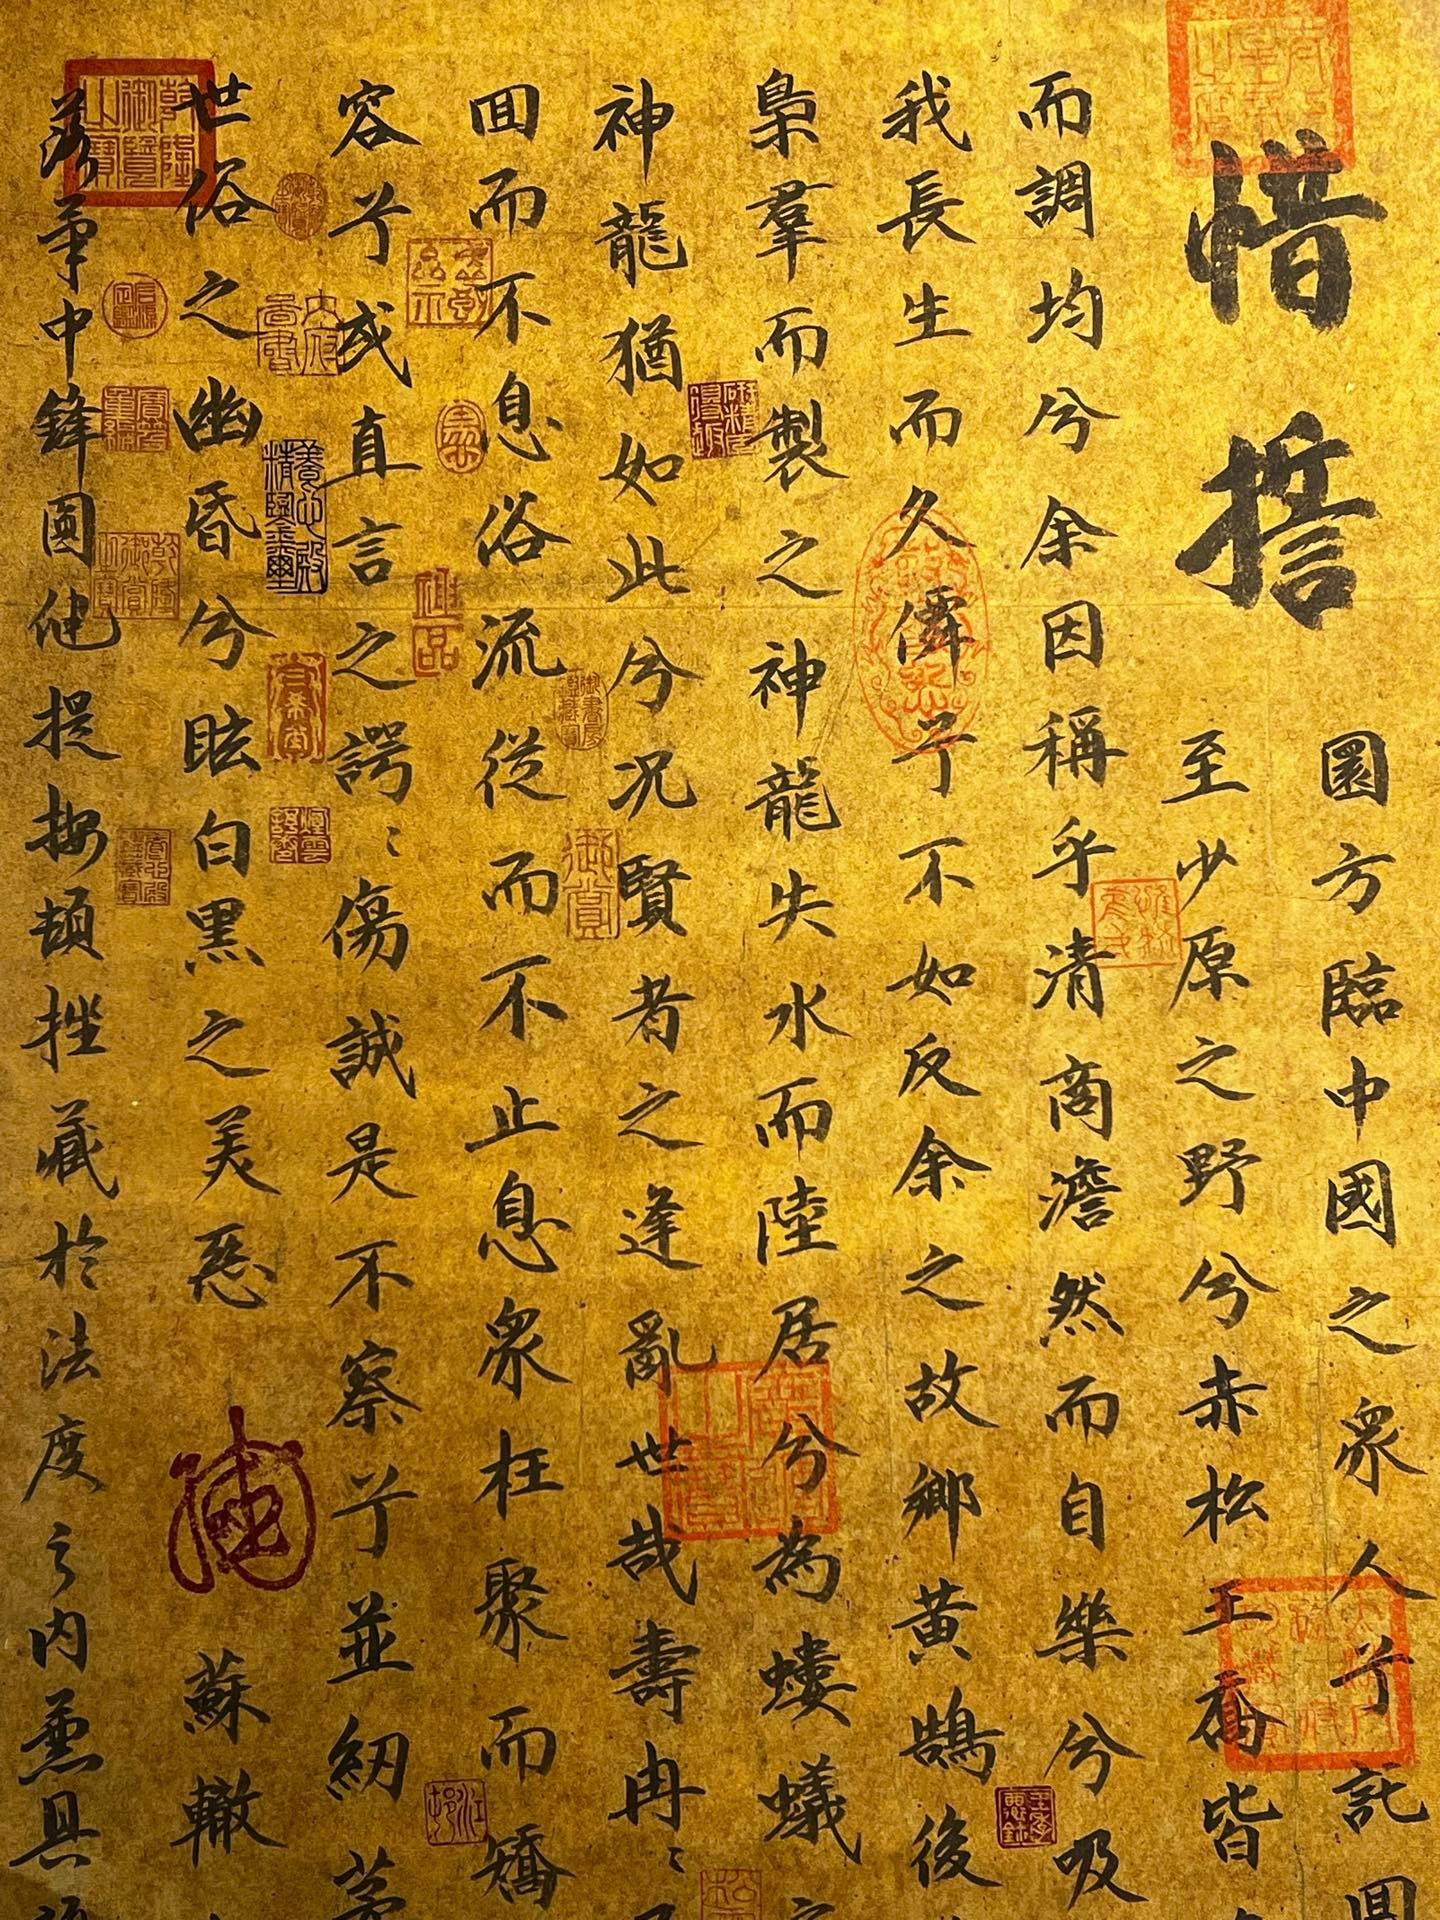 惜誓
園方臨中國之眾人兮託
至少原之野兮赤松王喬皆
而調均兮余因稱乎清商澹然而自樂兮吸
我長生而久僊兮不如反余之故鄉黃鵠後
梟羣而製之神龍失水而陸居兮為螻蟻
神龍猶如此兮況賢者之逢亂世哉壽冉〻
回而不息俗流從而不止息眾枉聚而矯
容兮或直言之諤〻傷誠是不察兮並紉茅
世俗之幽昏兮眩白黑之美惡 蘇轍
筆中鋒圓健提按頓挫藏於法度之內兼具